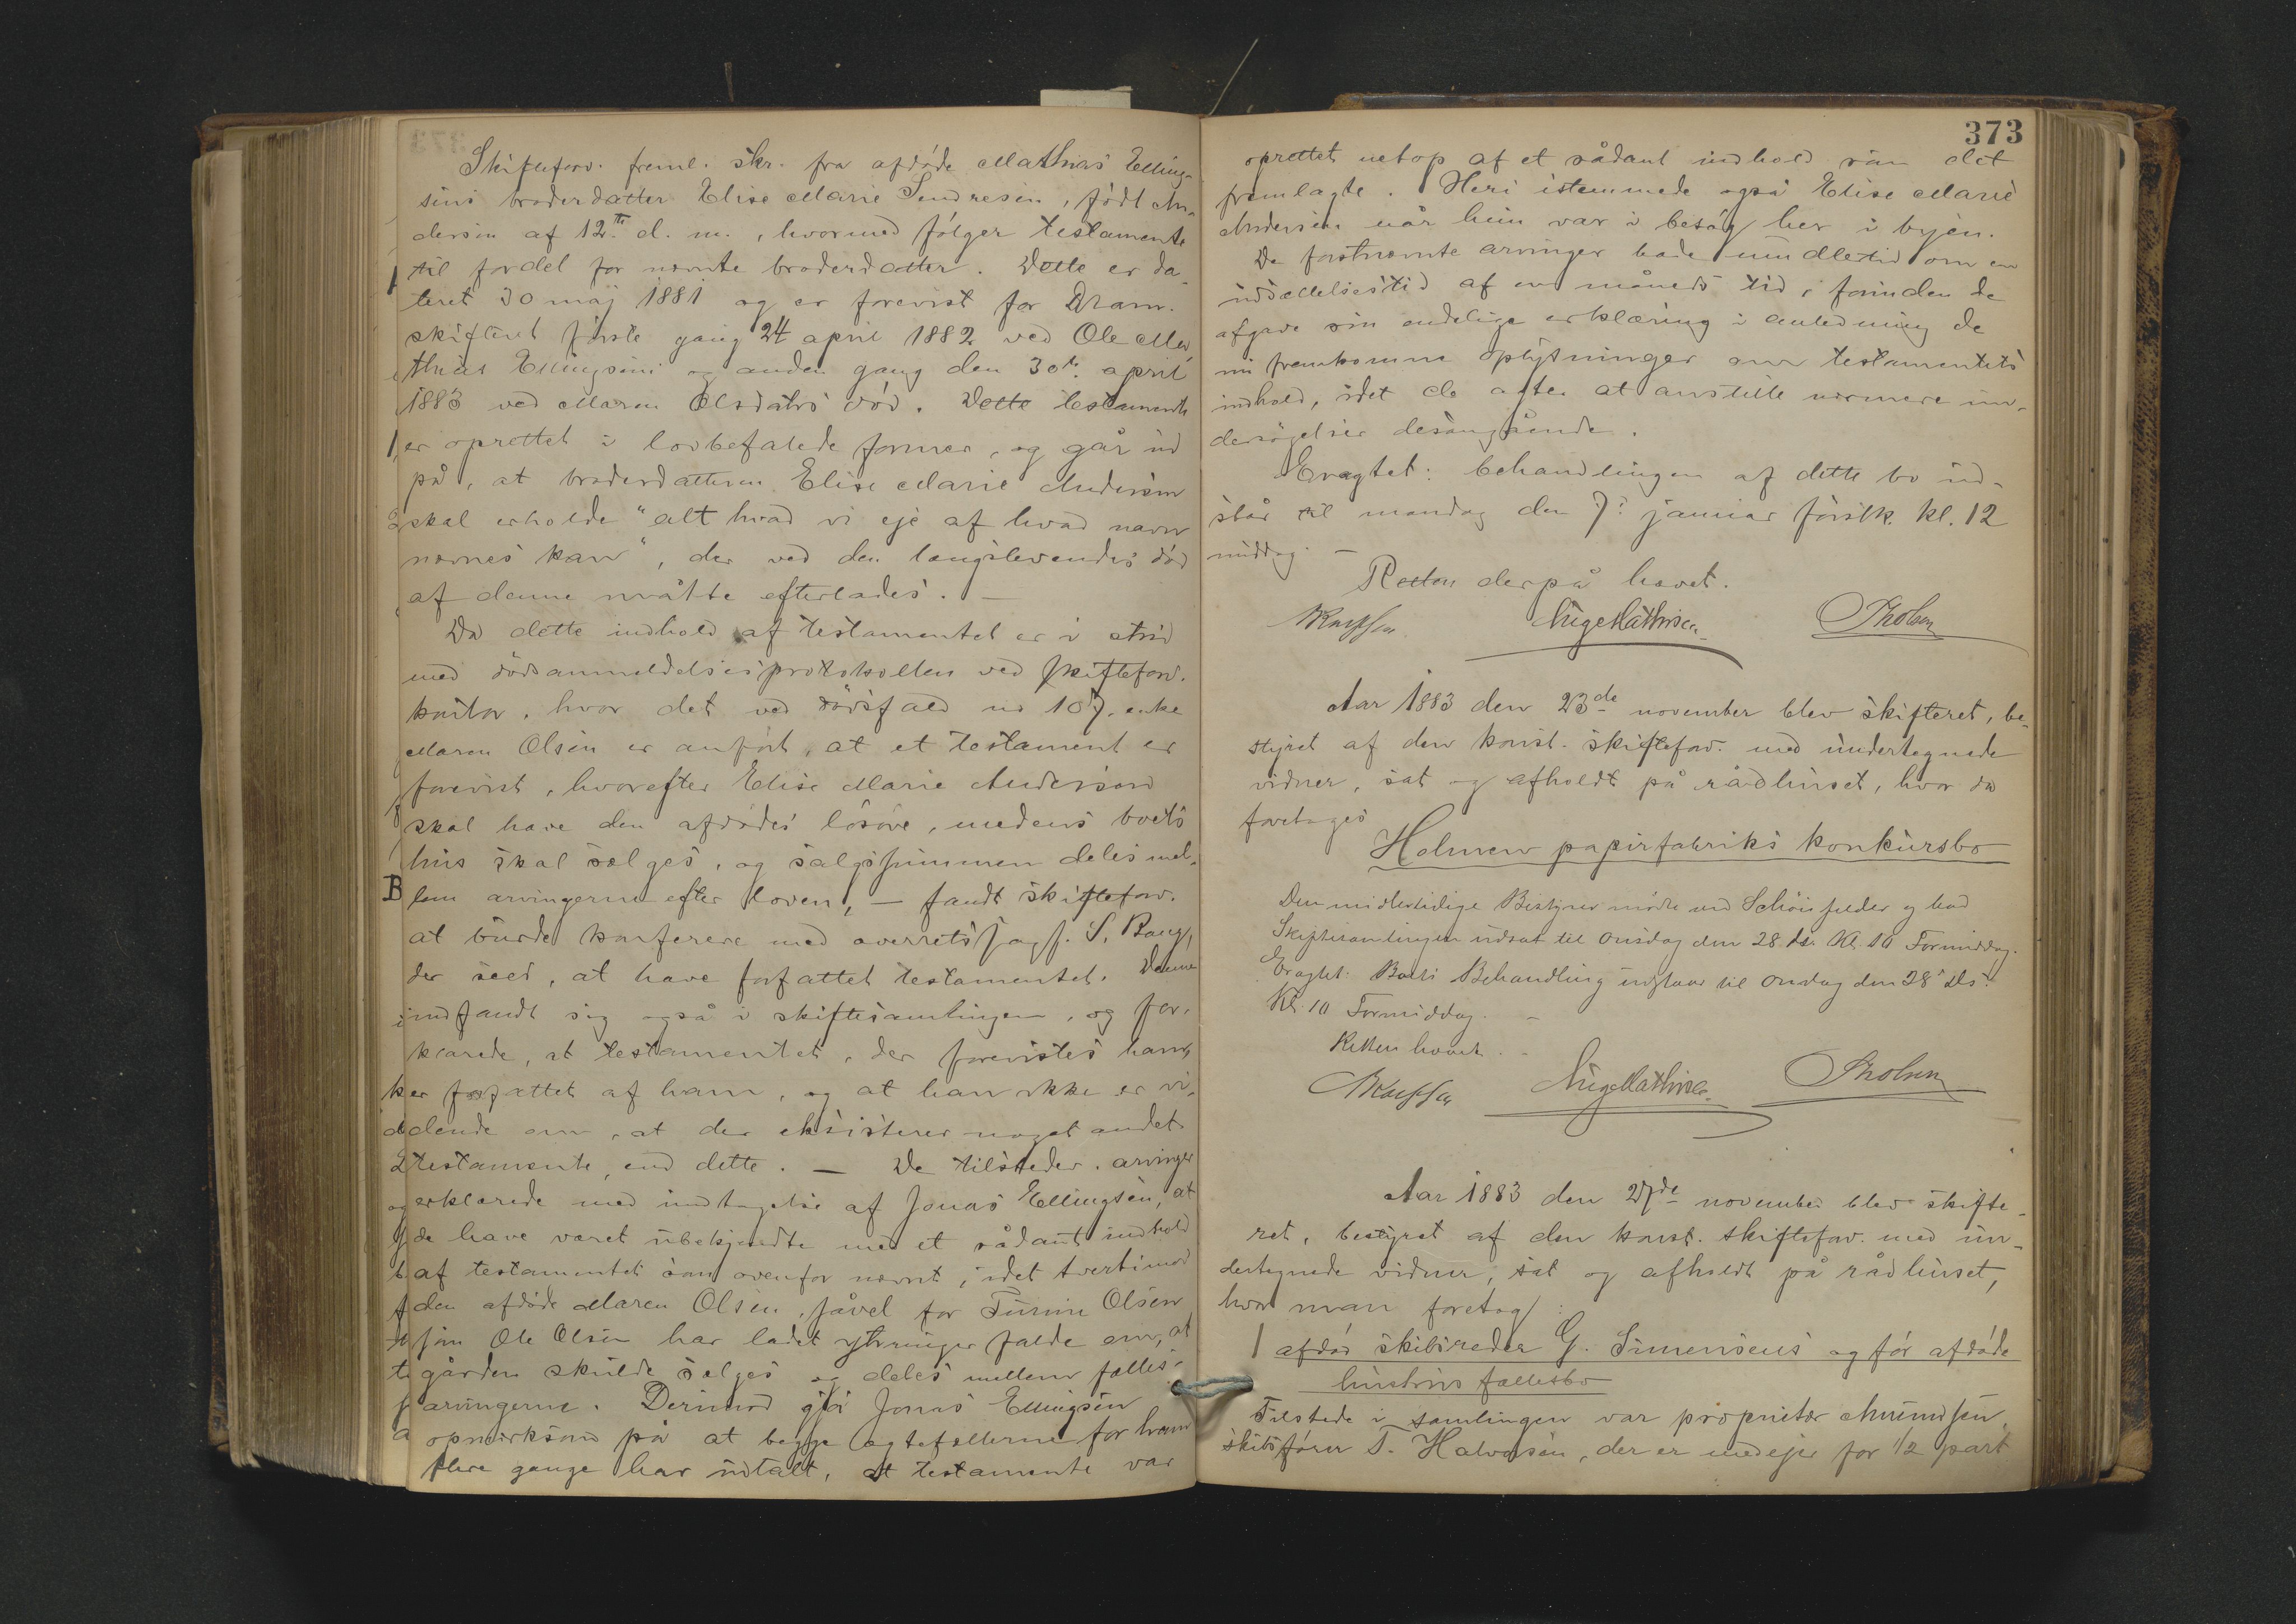 Skifteforv. freml. skr. fra afdøde Mathias Elling-
sens broderdatter Elise Marie Sendresen, født An-
dersen af 12te d. m., hvormed følger testamente
til fordel for nævnte broderdatter. Dette er da-
teret 30 maj 1881 og er forevist for Dram.
skifteret første gang 24 april 1882 ved Ole Ma-
thias Ellingsens og anden gang den 30te april
1883 ved Maren Olsdatrs død. Dette testamente
er oprettet i lovbefalede former, og går ud
på, at broderdatteren Elise Marie Andersen
skal erholde "alt hvad vi eje af hvad navn
nævnes kan", der ved den længstlevendes død
af denne måtte efterlades. —
Da dette indhold af testamentet er i strid
med dødsanmeldelsesprotokollen ved skifteforv.
kontor, hvor det ved dødsfald no 107, enke
Maren Olsen er anført, at et testament er
forevist, hvorefter Elise Marie Andersen
skal have den afdødes løsøre, medens boets
hus skal sælges, og salgssummen deles mel-
lem arvingerne efter loven, — fandt skifteforv.
at burde konferere med overretssagf. S. Bang,
der sees, at have forfattet testamentet. Denne
indfandt sig også i skiftesamlingen, og for-
klarede, at testamentet, der forevistes ham,
er forfattet af ham, og at han ikke er vi-
dende om, at der eksisterer noget andet
testamente, end dette. — De tilsteder. arvinger
erklærede med undtagelse af Jonas Ellingsen, at
de have været ubekjendte med et sådant indhold
af testamentet som ovenfor nævnt, idet tvertimod
den afdøde Maren Olsen, såvel for Turine Olsen
som Ole Olsen har ladet ytringer falde om, at
gården skulde sælges og deles mellem fælles-
arvingerne. Derimod gjør Jonas Ellingsen
opmærksom på at begge ægtefællerne for ham
flere gange har udtalt, at testamente var
373
oprettet netop af et sådant indhold som det
fremlagte. Heri istemmede også Elise Marie
Andersen når hun var i besøg her i byen.
De førstnævnte arvinger bade imidlertid om en
udsættelsestid af en måneds tid, forinden de
afgave sin endelige erklæring i anledning de
nu fremkomne oplysninger om testamentets
indhold, idet de agter at anstille nærmere un-
dersøgelser desangående.
Eragtet: behandlingen af dette bo ud-
står til mandag den 7: januar førstk. kl. 12
middag. —
Retten derpå hævet.
Aage Mathisen Tholsen
Aar 1883 den 23de november blev skifteret, be-
styret af den konst. skifteforv. med undertegnede
vidner, sat og afholdt på rådhuset, hvor da
foretoges
Holmen papirfabriks konkursbo
Den midlertidige Bestyrer mødte ved Schönfelder og bad
Skiftesamlingen udsat til Onsdag den 28 ds. Kl. 10 Formiddag.
Eragtet: Boets Behandling udstaar til Onsdag den 28 ds.
Kl. 10 Formiddag. —
Retten hævet. —
Aage Mathisen Tholsen
Aar 1883 den 27de november blev skifte-
ret, bestyret af den konst. skifteforv. med un-
dertegnede vidner, sat og afholdt på rådhuset,
hvor man foretog:
1 afdød skibsreder G. Simensens og før afdøde
hustrus fællesbo
Tilstede i samlingen var proprietær Amundsen,
skibsfører T. Halvorsen, der er medejer for 1/2 part